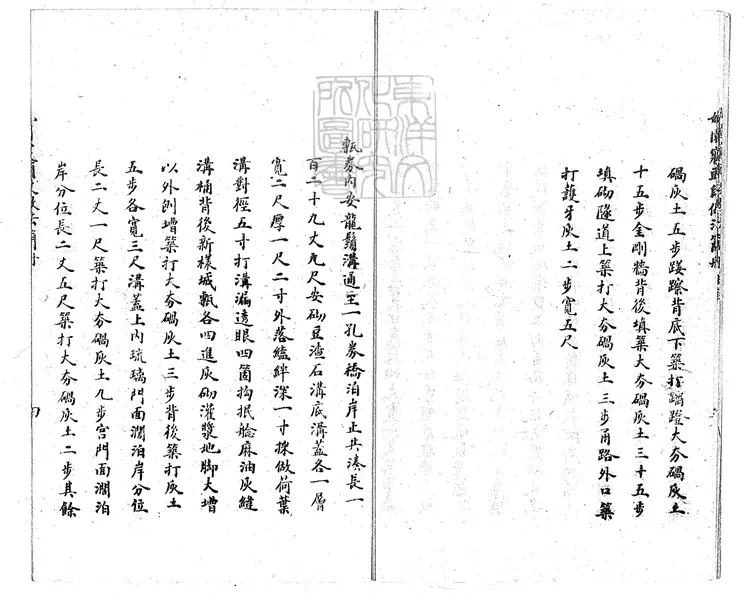 碢灰土五步踐蹽背底下築打躧蹬大夯碢灰土
十五步金剛牆背後填築大夯碢灰土三十五步
填砌隧道上築打大夯碢灰土三步甬路外口築
打護牙灰土二步寬五尺
甎券內安龍鬚溝通至一孔券橋泊岸止共湊長一
百二十九丈九尺安砌豆渣石溝底溝蓋各一層
寬二尺厚一尺二寸外落𥖎絆深一寸採做荷葉
溝對徑五寸打溝漏透眼四箇拘抿艌麻油灰縫
溝桶背後新樣城甎各四進灰砌灌漿地脚大槽
以外刨槽築打大夯碢灰土三步背後築打灰土
五步各寬三尺溝蓋上內琉璃門面濶泊岸分位
長二丈一尺築打大夯碢灰土九步宮門面濶泊
岸分位長二丈五尺築打大夯碢灰土二步其餘
四
東洋文
化研究
所圖書